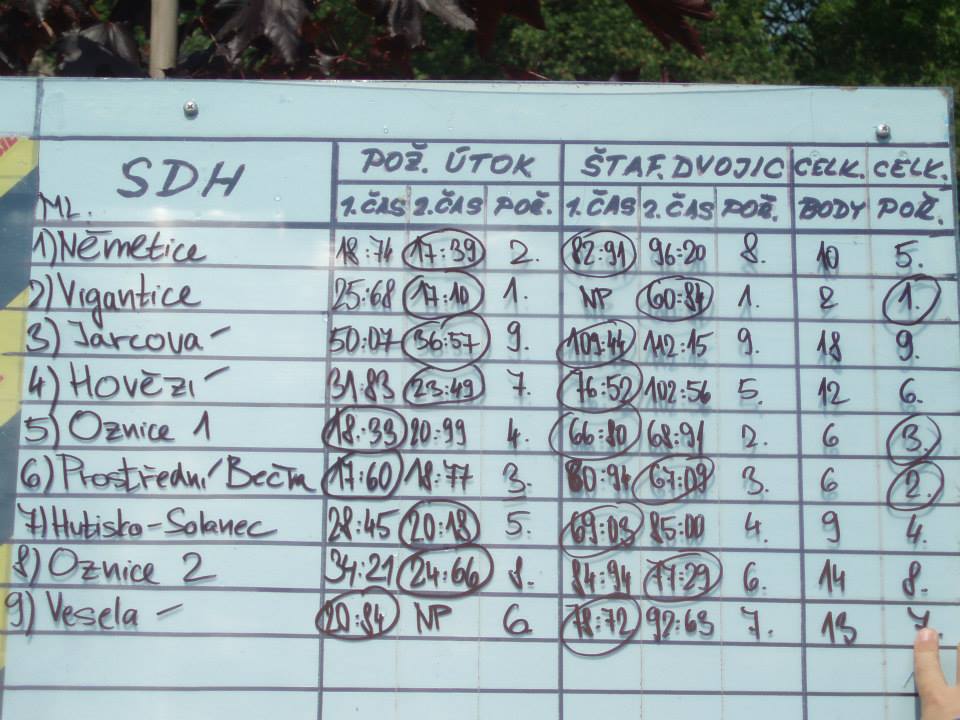 SDH POŽ. ÚTOK ŠTAF. DVOJIC CELK. CELK.
ML. 1.ČAS 2.ČAS POŘ. 1.ČAS 2.ČAS POŘ. BODY POŘ.
1) Němetice 18:74 17:39 2. 82:91 96:20 8. 10 5.
2) Vigantice 25:68 17:10 1. NP 60:84 1. 2 1.
3) Jarcová 50:07 36:57 9. 109:44 112:15 9. 18 9.
4) Hovězí 31:83 23:49 7. 76:52 102:56 5. 12 6.
5) Oznice 1 18:39 20:99 4. 66:80 68:91 2. 6 3.
6) Prostřední Bečva 17:60 18:77 3. 80:94 67:09 3. 6 2.
7) Hutisko-Solanec 28:45 20:18 5. 69:03 85:00 4. 9 4.
8) Oznice 2 34:21 24:66 8. 84:94 77:29 6. 14 8.
9) Veselá 20:84 NP 6. 78:72 92:63 7. 13 7.